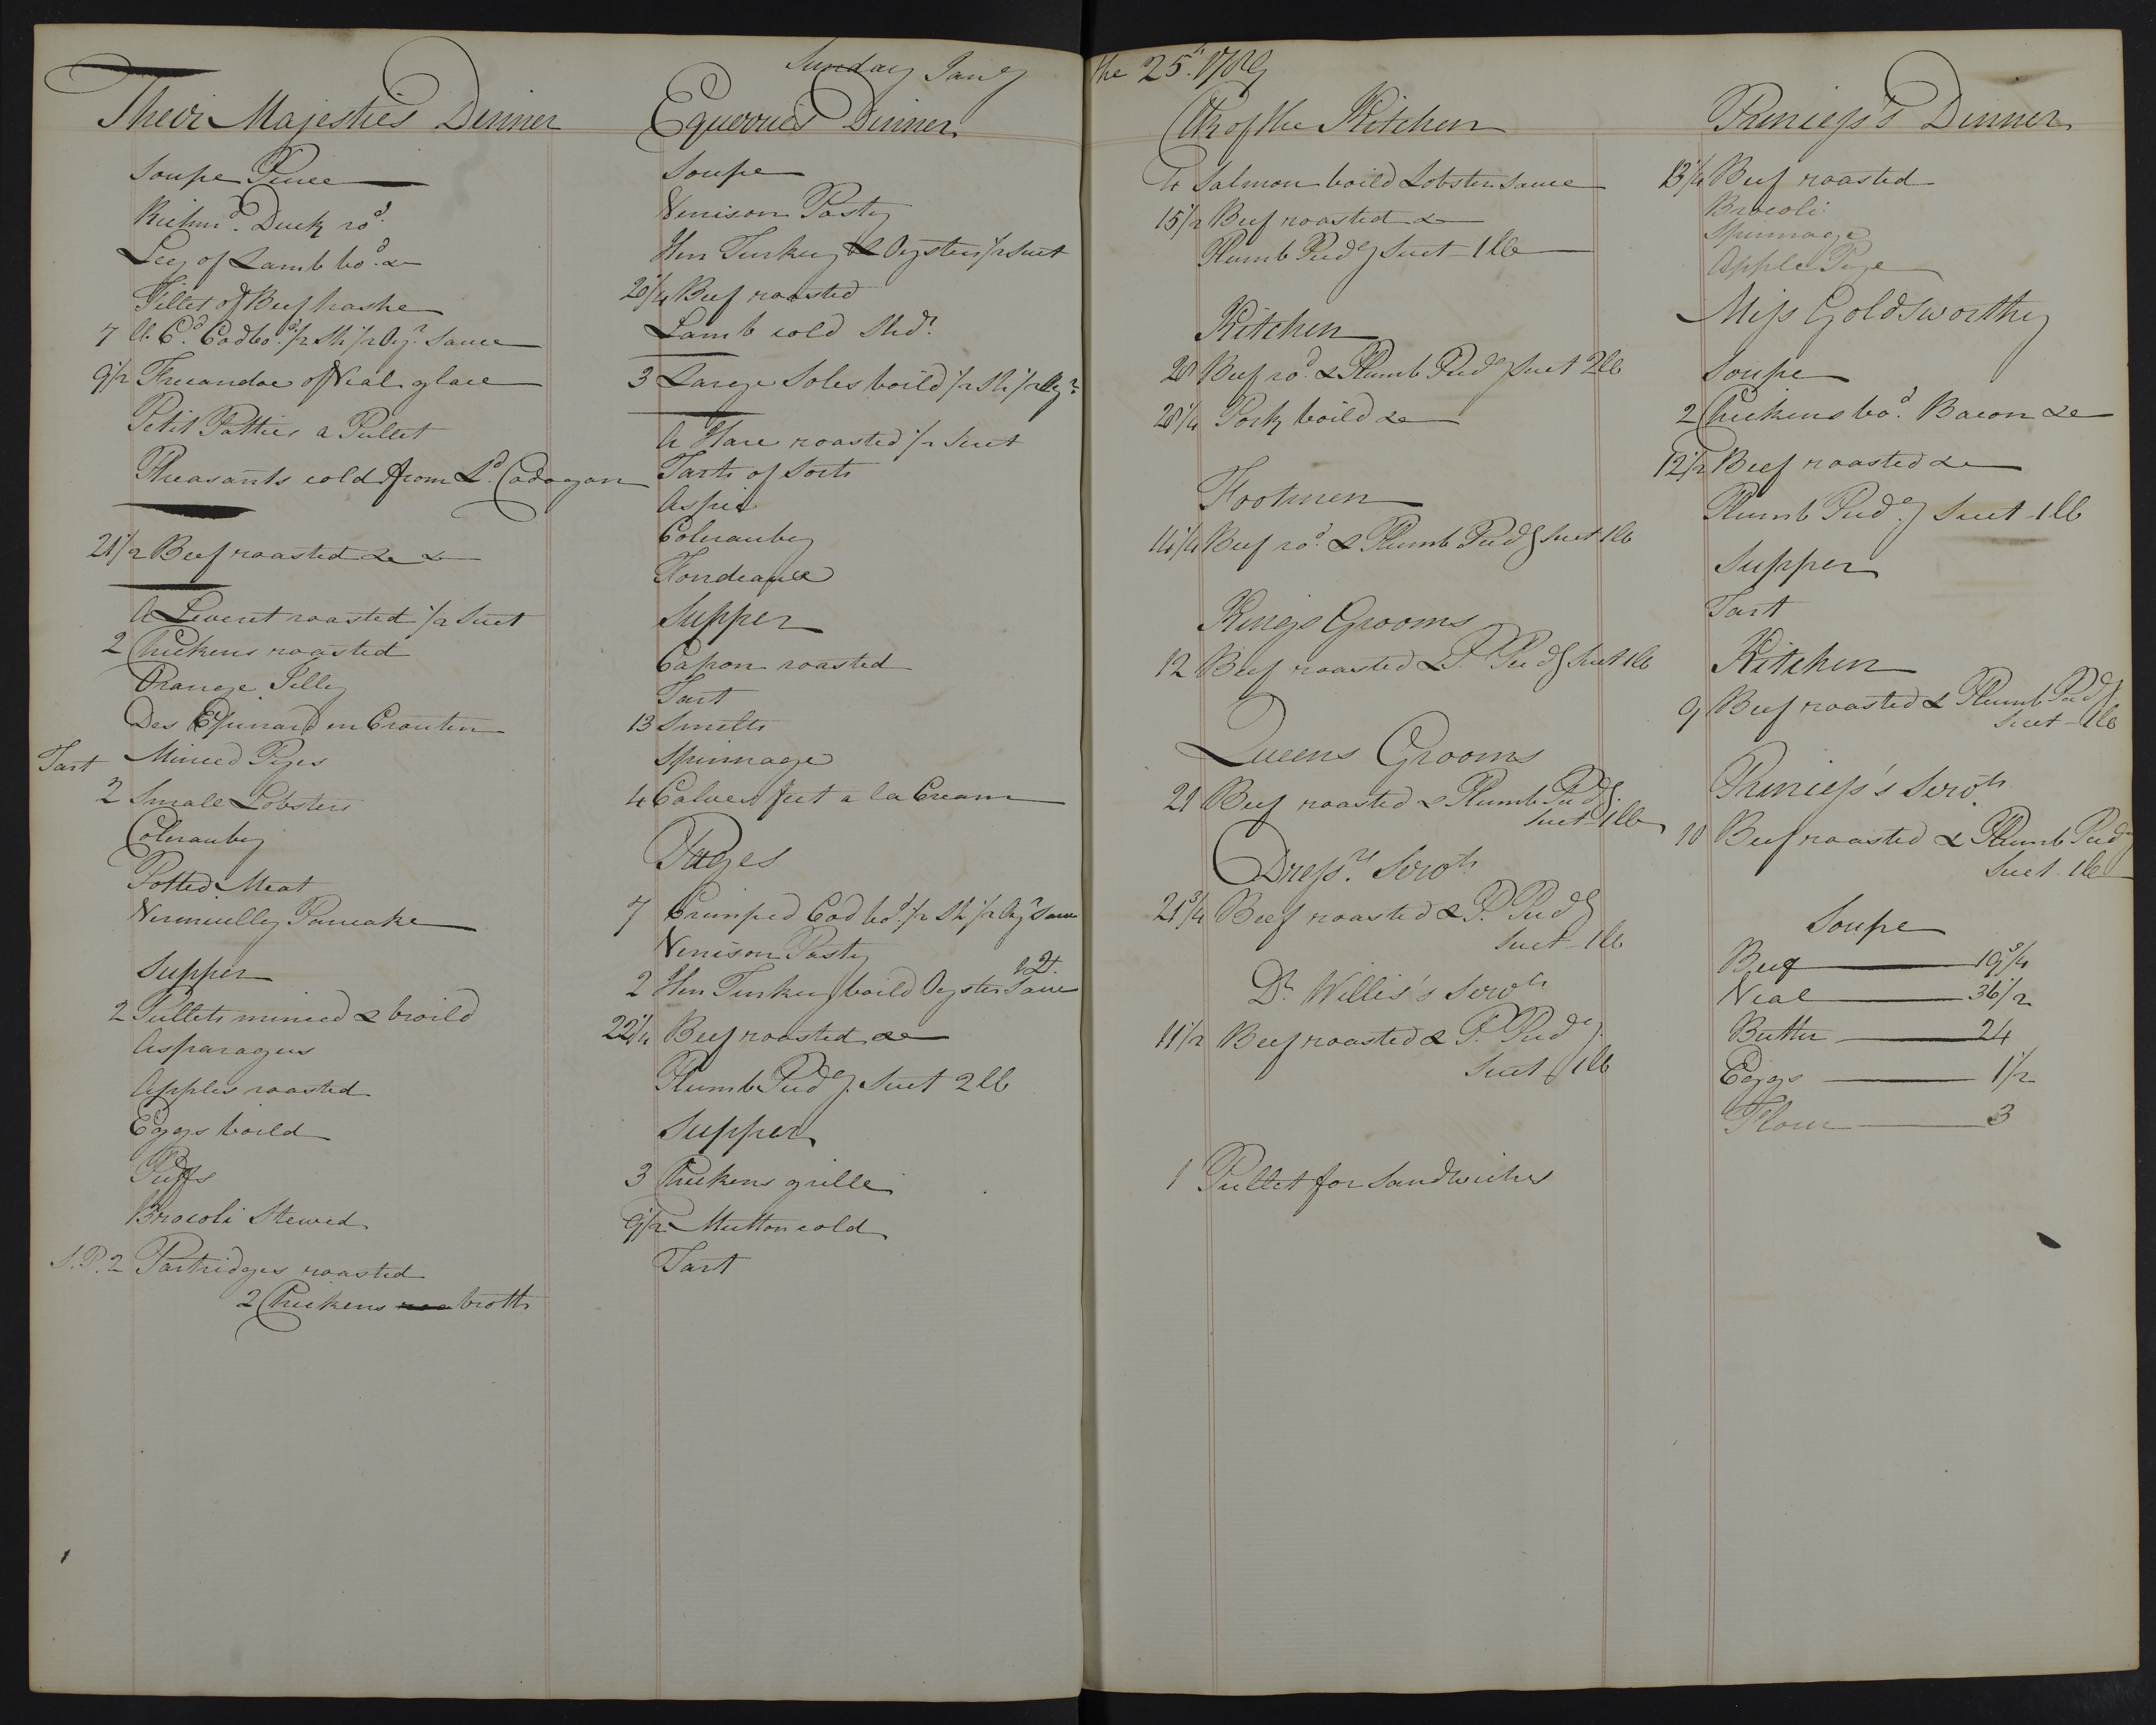 Sunday Jany
the 25th. 1789
Their Majesties Dinner
Soupe Puree
Richmd. Duck rod.
Leg of Lamb bod. &c
Fillet of Beef hashe
7 lb Cd. Cod bod. 1/2 Sh 1/2 Oyr. Sauce
9 1/2 Fricandoe of Veal glace
Petit Patties a Pullet
Pheasants cold from Ld. Cadogan
21 1/2 Beef roasted &c &c
A Leveret roasted 1/2 Suet
2 Chickens roasted
Orange Jelly
Des Epinard en Crouten
Tart Minced Pyes
2 Small Lobsters
Colerauby
Potted Meat
Vermicelly Pancake
Supper
2 Pullets minced & broild
Asparagus
Apples roasted
Eggs boild
Puffs
Brocoli Stewed
S.P. 2 Partridges roasted
2 Chickens broth
Equerries Dinner
Soupe
Venison Pasty
Hen Turkey & Oysters 1/2 Suet
20 1/4 Beef roasted
Lamb cold Shdr.
3 Large Soles boild 1/2 Sh 1/2 Oyr.
A Hare roasted 1/2 Suet
Tarts of Sorts
Aspic
Colerauby
Fondeaux
Supper
Capon roasted
Tart
13 Smelts
Spinnage
4 Calves feet a la Cream
Pages
7 Crimped Cod bod. 1/2 Sh 1/2 Oyr Sauce
Venison Pasty
2 Hen Turkey boild Oyster Sauce
22 1/4 Beef roasted &c
Plumb Pudg. Suet 2 lb
Supper
3 Chickens grille
9 1/2 Mutton cold
Tart
Clk of the Kitchen
4 Salmon boild Lobster Sauce
15 1/2 Beef roasted &c
Plumb Pudg Suet 1 lb
Kitchen
28 Beef rod. & Plumb Pudg Suet 2 lb
28 1/4 Pork boild &c
Footmen
14 1/4 Beef rod. & Plumb Pudg Suet 1 lb
Kings Grooms
12 Beef roasted & P. Pudg Suet 1 lb
Queens Grooms
21 Beef roasted & Plumb Pudg.
Suet 1 lb
Dressrs. Servts
21 3/4 Beef roasted & P. Pudg
Suet 1 lb
Dr. Willis's Servts
11 1/2 Beef roasted & P. Pudg.
Suet 1 lb
1 Pullet for Sandwiches
Princess's Dinner
13 1/4 Beef roasted
Brocoli
Spinnage
Apple Pye
Miss Goldsworthy
Soupe
2 Chickens bod. Bacon &c
12 1/2 Beef roasted &c
Plumb Pudg Suet 1 lb
Supper
Tart
Kitchen
9 Beef roasted & Plumb Pudg
Suet 1 lb
Princess's Servts
10 Beef roasted & Plumb Pudg
Suet 1 lb
Soupe
Beef 19 3/4
Veal 36 1/2
Butter 24
Eggs 1 1/2
Flour 3